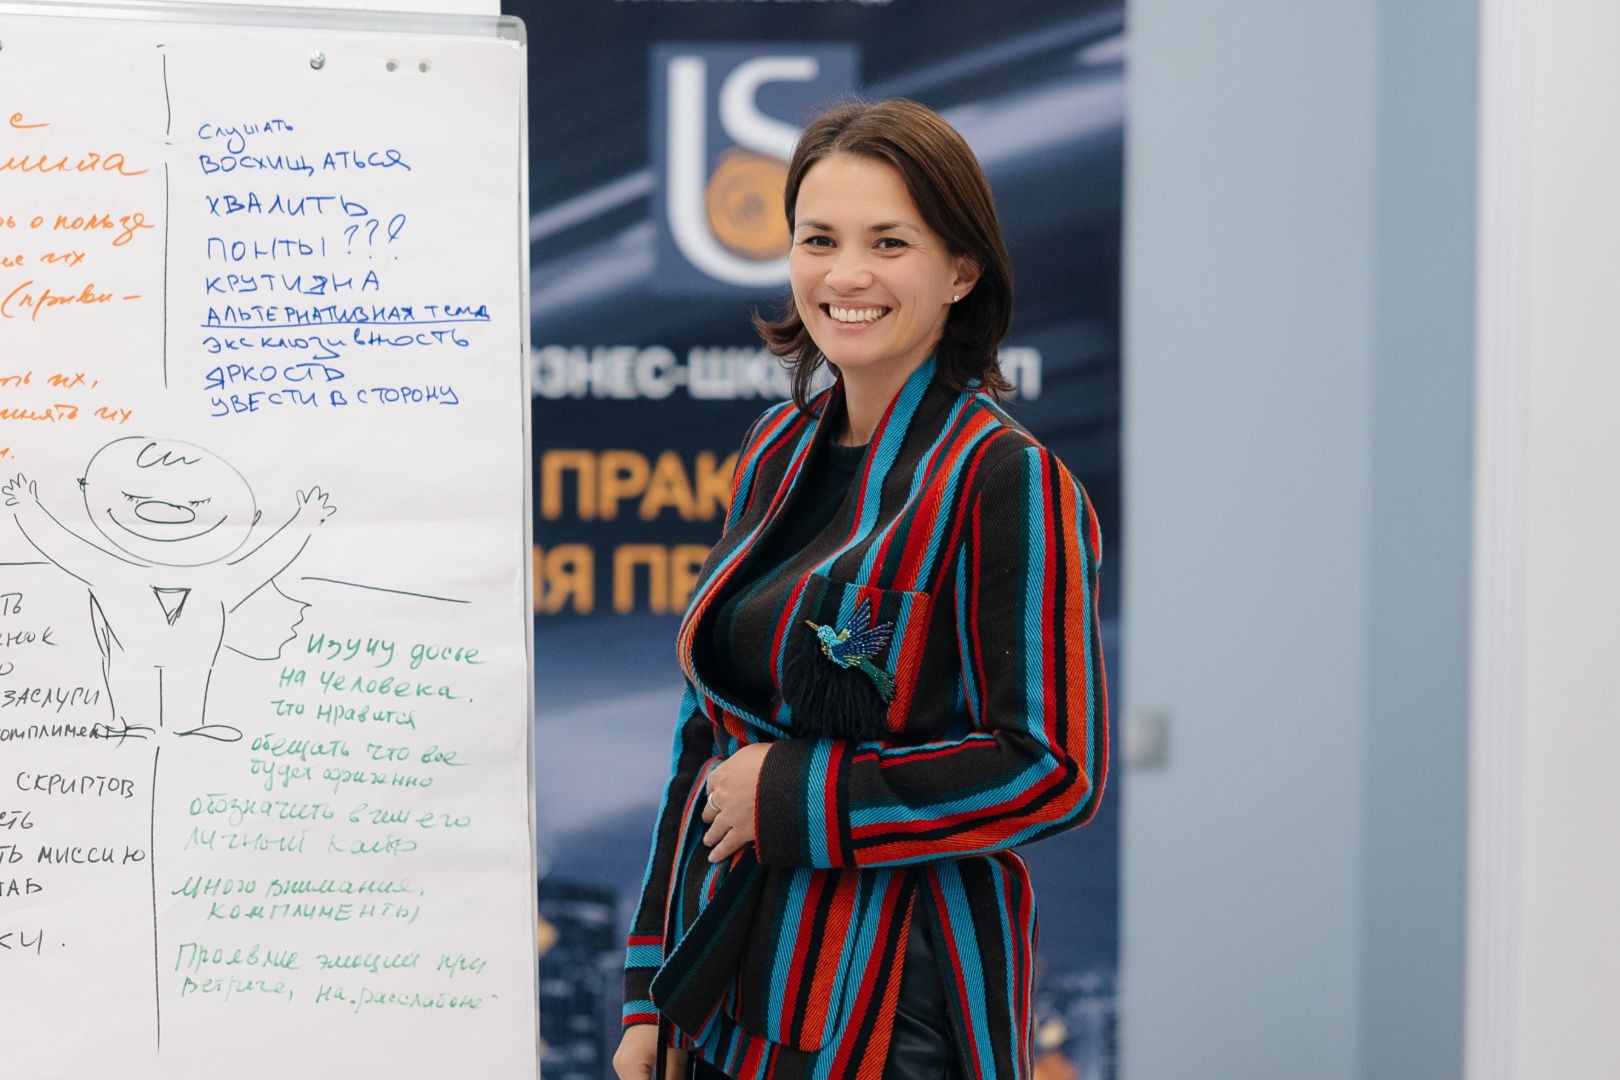 е
мента
рь о пользе
ие их
(приви-
ть их,
инять их
слушать
ВОСХИЩАТЬСЯ
ХВАЛИТЬ
ПОНТЫ ???
КРУТИЗНА
АЛЬТЕРНАТИВНАЯ тема
эксклюзивность
ЯРКОСТЬ
УВЕСТИ В СТОРОНУ
ТЬ
ЕНОК
О
ЗАСЛУГИ
комплимент
СКРИПТОВ
СТЬ
ТЬ МИССИЮ
ТАБ
КИ.
Изучу досье
на человека.
что нравится
обещать что все
будет офигенно
обозначить в чем его
личный кайф
Много внимания,
комплименты,
эмоций при
встрече, на расслабоне
US
БИЗНЕС-ШК П
ПРАК
ЛЯ ПР